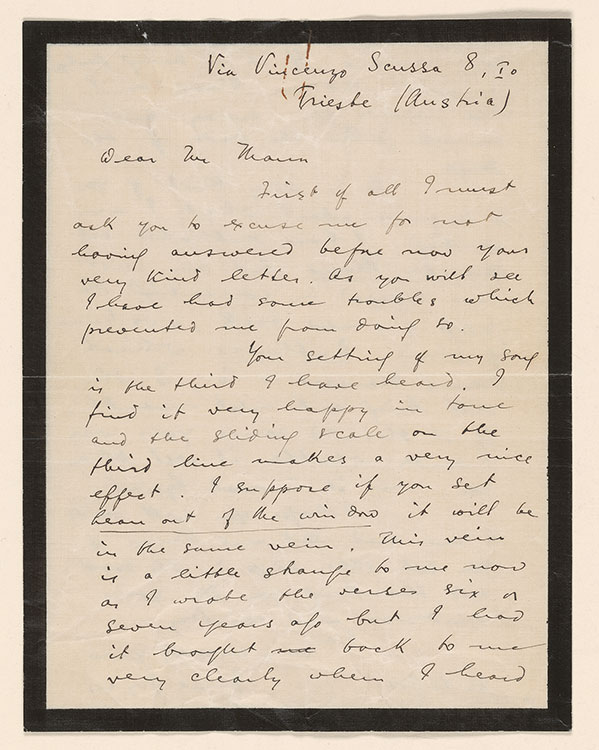 Via Vincenzo Scussa 8, I°
Trieste (Austria)
Dear Mr Mann
First of all I must
ask you to excuse me for not
having answered before now your
very kind letter. As you will see
I have had some troubles which
prevented me from doing so.
Your setting of my song
is the third I have heard. I
find it very happy in tone
and the sliding scale on the
third line makes a very nice
effect. I suppose if you set
lean out of the window it will be
in the same vein. This vein
is a little strange to me now
as I wrote the verses six or
seven years ago but I had
it brought me back to me
very clearly when I heard